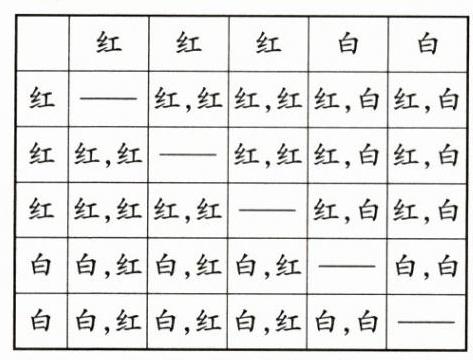 红 红 红 白 白
红 —— 红,红 红,红 红,白 红,白
红 红,红 —— 红,红 红,白 红,白
红 红,红 红,红 —— 红,白 红,白
白 白,红 白,红 白,红 —— 白,白
白 白,红 白,红 白,红 白,白 ——